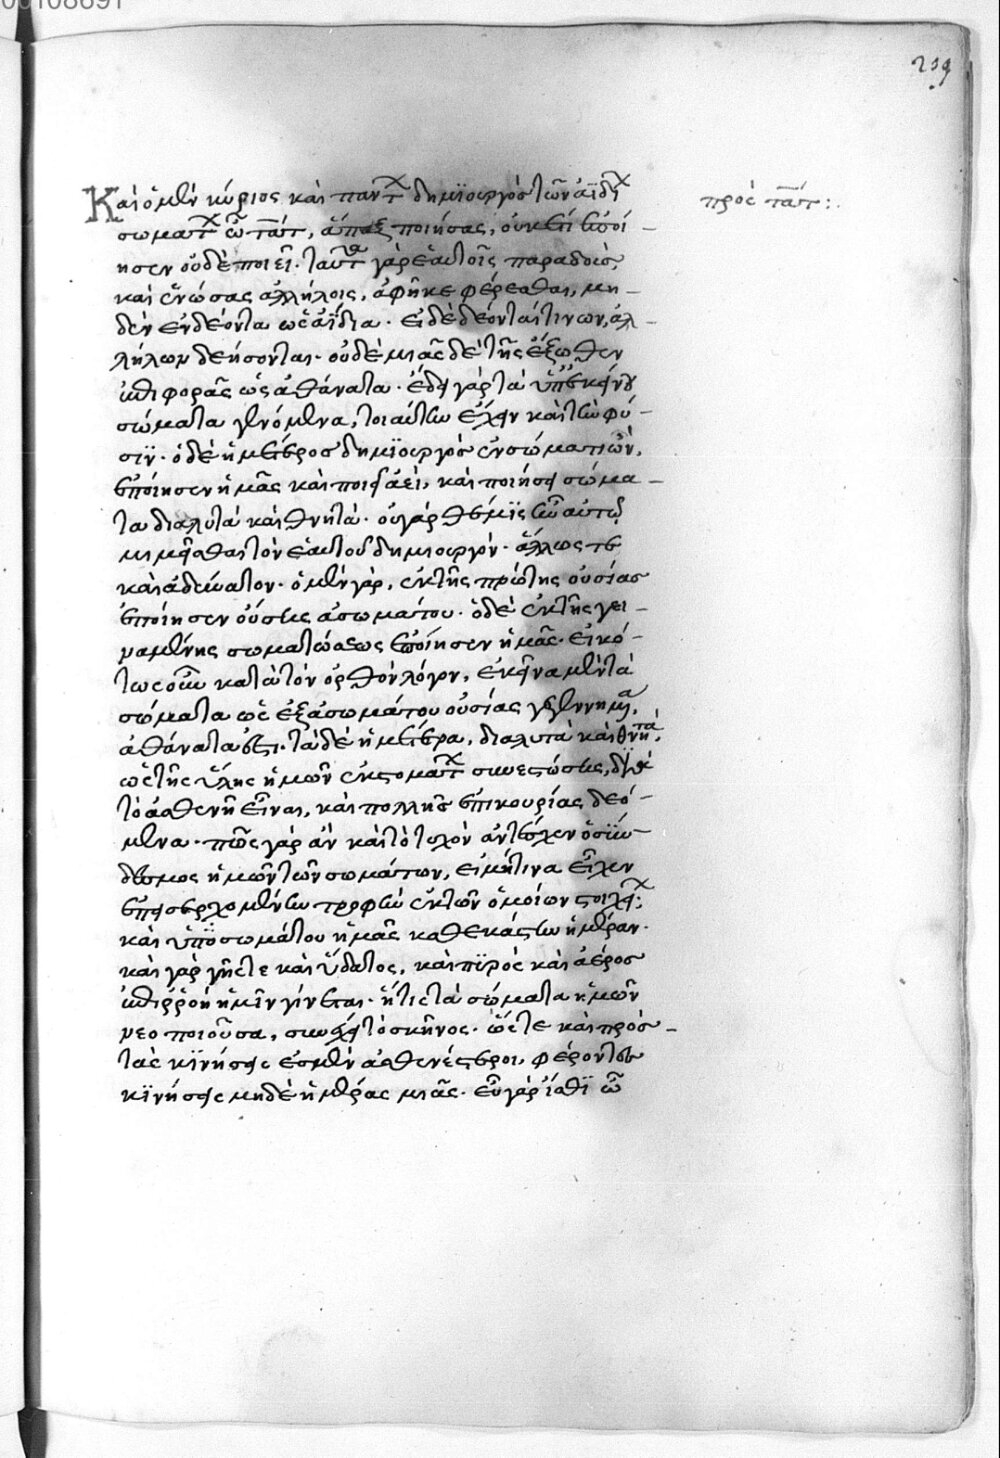 00108691
219
Καὶ ὁ μὲν κύριος καὶ παντ̅ χ̅ δημϊουργὸς τῶν ἀϊδί χ̅
πρὸς τάτ:.
σωματ χ̅ ὦ τάτ, ἅπαξ ποιήσας, οὐκέτι ἐποί-
ησεν οὐδὲ ποιεῖ. ταῦτα γὰρ ἑαυτοῖς παραδοὺς
καὶ ἑνώσας ἀλλήλοις, ἀφῆκε φέρεσθαι, μη-
δὲν ἐνδέοντα ὡς ἀΐδια. εἰ δὲ δέονταί τινων, ἀλ-
λήλων δεήσονται. οὐδὲ μιᾶς δὲ τῆς ἔξωθεν
ἐπιφορᾶς ὡς ἀθάνατα. ἔδει γὰρ τὰ ὑπ' ἐκείνου
σώματα γενόμενα, τοιαύτην ἔχειν καὶ τὴν φύ-
σϊν. ὁ δὲ ἡμέτερος δημϊουργὸς ἐν σώματι ὢν,
ἐποίησεν ἡμᾶς καὶ ποιεῖ ἀεὶ, καὶ ποιήσει σώμα-
τα διαλυτὰ καὶ θνητά. οὐ γὰρ θέμϊς ἦν αὐτῷ
μιμεῖσθαι τὸν ἑαυτοῦ δημιουργόν. ἄλλως τε
καὶ ἀδύνατον. ὁ μὲν γὰρ, ἐκ τῆς πρώτης οὐσίας
ἐποίησεν οὔσης ἀσωμάτου. ὁ δὲ ἐκ τῆς γει-
ναμένης σωματώσεως ἐποίησεν ἡμᾶς. εἰκό-
τως οὖν κατὰ τὸν ὀρθὸν λόγον, ἐκεῖνα μὲν τὰ
σώματα ὡς ἐξ ἀσωμάτου οὐσίας γεγεννημέα,
ἀθάνατα ἐστι. τὰ δὲ ἡμέτερα, διαλυτὰ καὶ θνητὰ.
ὡς τῆς ὕλης ἡμῶν ἐκ σωματ χ̅ συνεστώσης, διὰ
τὸ ἀσθενῆ εἶναι, καὶ πολλῆς ἐπικουρίας δεό-
μενα. πῶς γὰρ ἂν καὶ τὸ τυχὸν ἀντέσχεν ὁ σϋν-
δεσμος ἡμῶν τῶν σωμάτων, εἰ μή τινα εἶχεν
ἐπεισερχομένην τροφὴν ἐκ τῶν ὁμοίων στοιχεί χ̅:
καὶ ὑπὸ σωμάτου ἡμᾶς καθεκάστην ἡμέραν.
καὶ γὰρ γῆς τε καὶ ὕδατος, καὶ πϋρὸς καὶ ἀέρος
ἐπιρροὴ ἡμῖν γίνεται. ἥτις τὰ σώματα ἡμῶν
νεοποιοῦσα, συνέχει τὸ σκῆνος. ὥστε καὶ πρὸς-
τὰς κϊνήσεις ἐσμὲν ἀσθενέστεροι, φέροντες
κϊνήσεις μηδὲ ἡμέρας μιᾶς. εὖ γὰρ ἴσθϊ ὦ